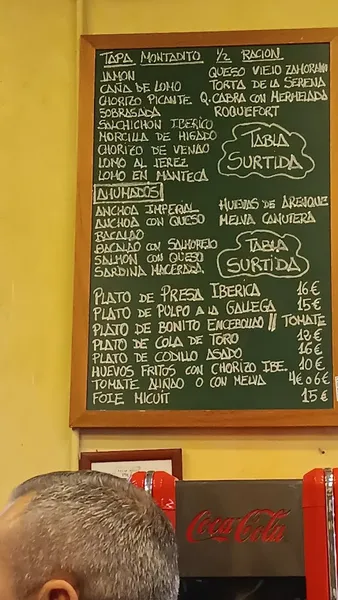 TAPA MONTADITO 1/2 RACION
JAMON
CAÑA DE LOMO
CHORIZO PICANTE
SOBRASADA
SALCHICHON IBERICO
MORCILLA DE HIGADO
CHORIZO DE VENAO
LOMO AL JEREZ
LOMO EN MANTECA
QUESO VIEJO ZAMORANO
TORTA DE LA SERENA
Q. CABRA CON MERMELADA
ROQUEFORT
TABLA
SURTIDA
AHUMADOS
ANCHOA IMPERIAL
ANCHOA CON QUESO
BACALAO
BACALAO CON SALMOREJO
SALMON CON QUESO
SARDINA MACERADA
HUEVAS DE ARENQUE
MELVA CANUTERA
TABLA
SURTIDA
PLATO DE PRESA IBERICA 16€
PLATO DE PULPO A LA GALLEGA 15€
PLATO DE BONITO ENCEBOLLAO // TOMATE
PLATO DE COLA DE TORO 12€
PLATO DE CODILLO ASADO 16€
HUEVOS FRITOS CON CHORIZO IBE. 10€
TOMATE ALIÑAO O CON MELVA 4€ o 6€
FOIE MICUIT 15€
Coca-Cola